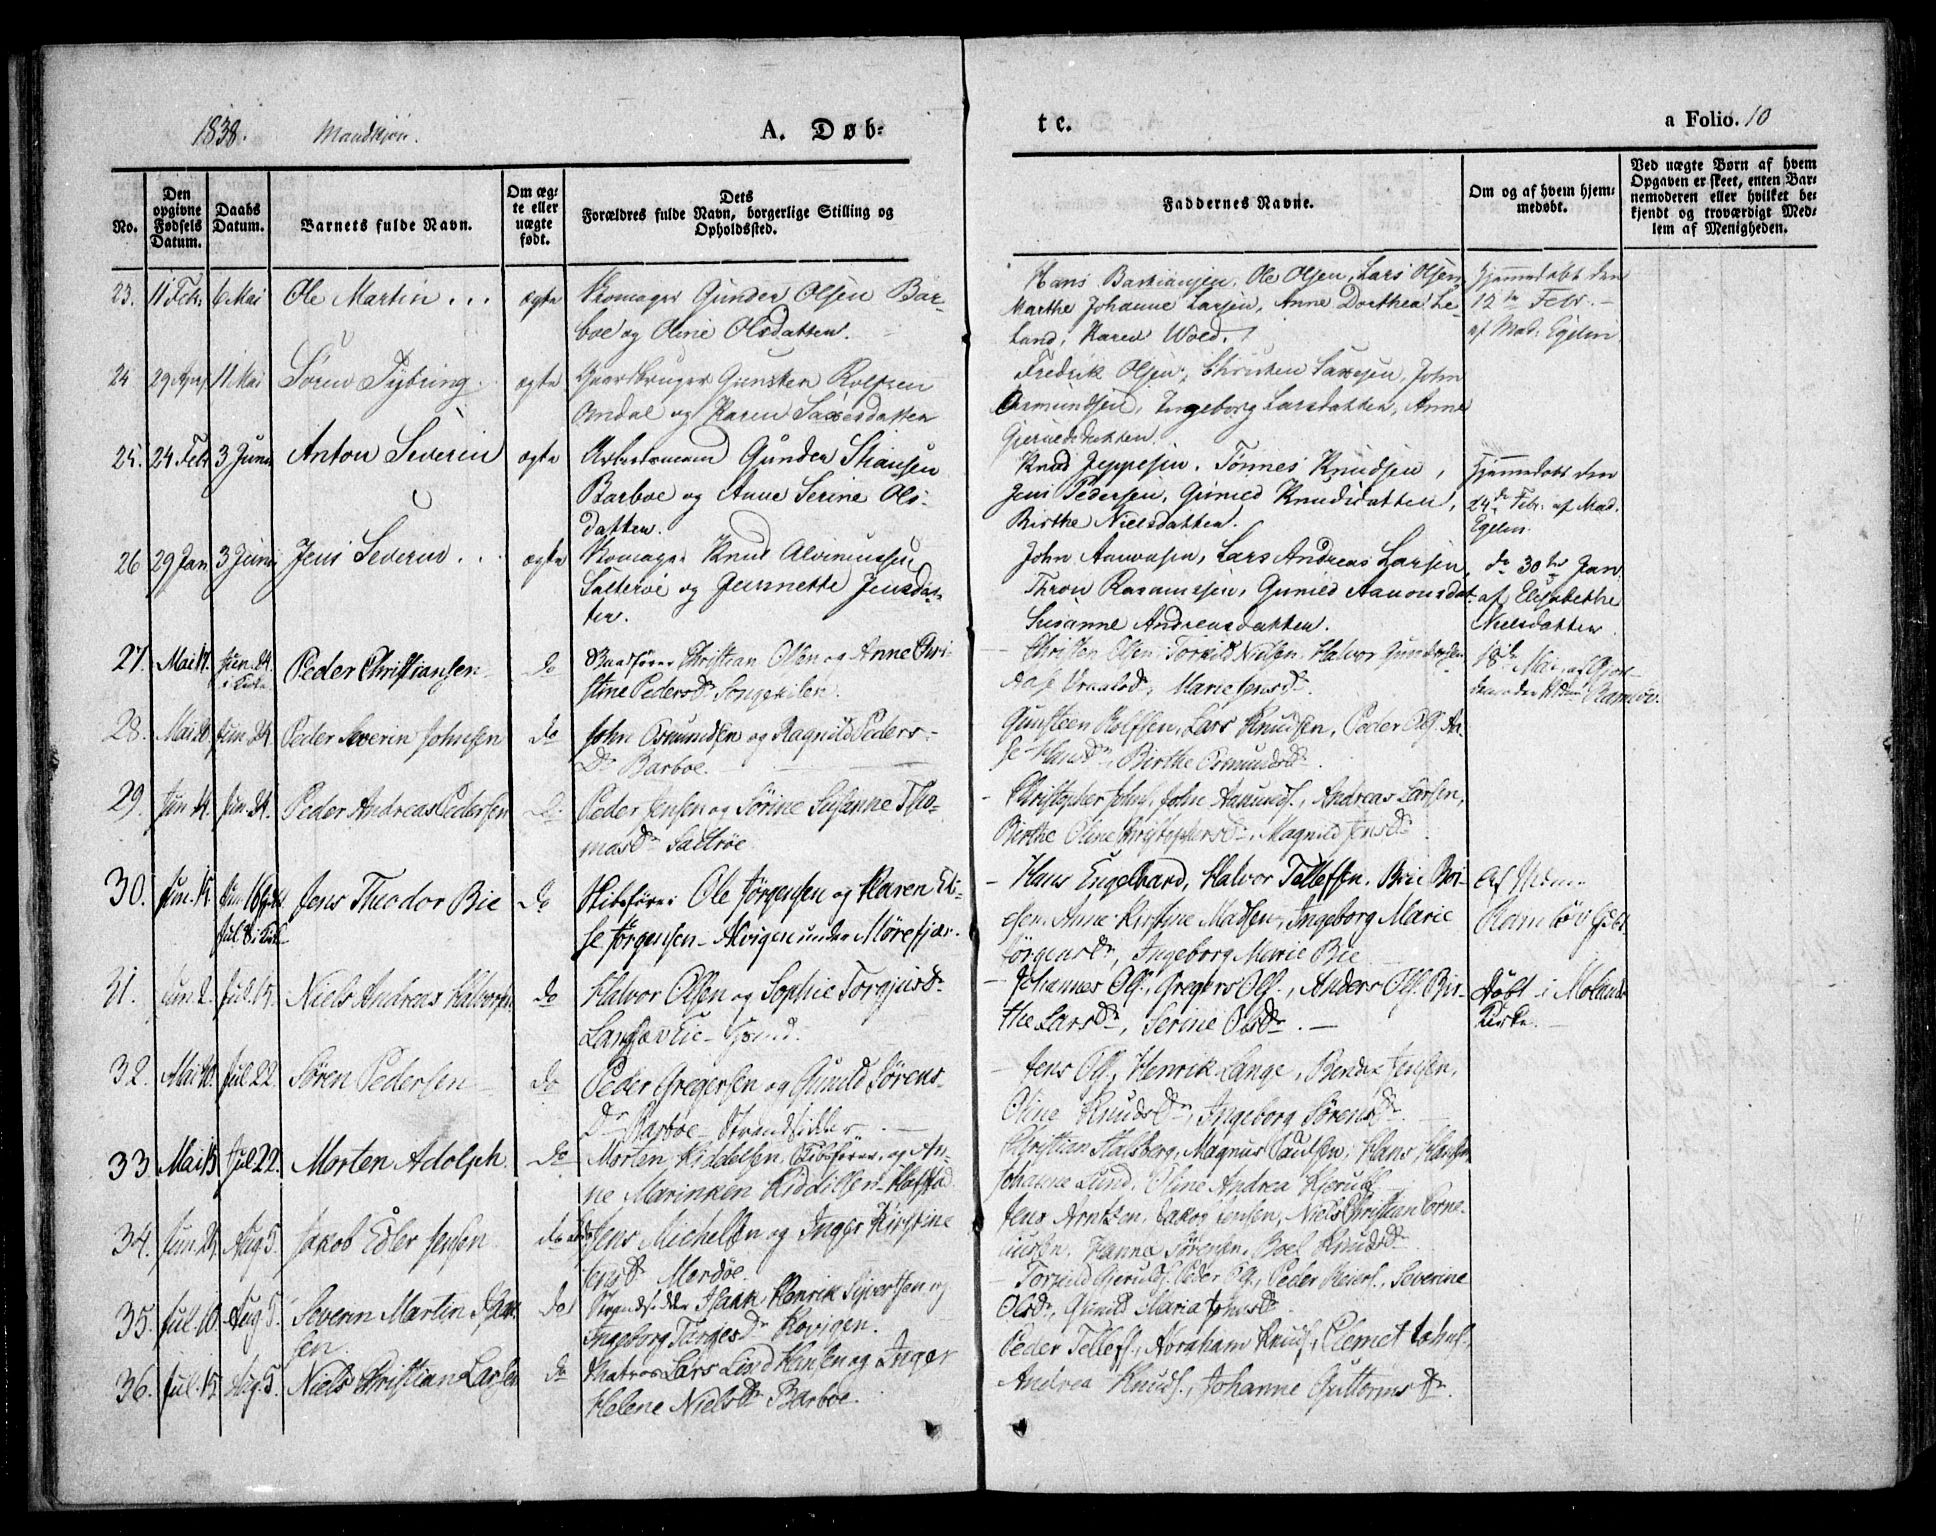 1838. Mandkjøn. A. Døb- te. a Folio. 10
No.
Den opgivne Fødsels Datum.
Daabs Datum.
Barnets fulde Navn.
Om ægte eller uægte født.
Dets Forældres fulde Navn, borgerlige Stilling og Opholdssted.
Faddernes Navne.
Om og af hvem hjemmedøbt.
Ved uægte Børn af hvem Opgaven er skeet, enten Barnemoderen eller hvilket bekjendt og troværdigt Medlem af Menigheden.
23. 11 Febr. 6 Mai Ole Martin ... ægte Skomager Gunder Olsen Bar-
boe og Oline Olsdatter.
Hans Bastiansen, Ole Olsen, Lars Olsen,
Marthe Johanne Larsen, Anne Dorthea Le-
land, Karen Wold.
Hjemmedøbt den
12te Febr. -
af Mad. Egelin
24 29 Apr. 11 Mai Søren Dybring. ægte Gaardbruger Gunsten Rolfsen
Omdal og Karen Saxesdatter
Fredrik Olsen, Christen Saxesen, John
Osmundsen, Ingeborg Larsdatter, Anne
Gjeruldsdatter.
25. 24 Febr 3 Juni Anton Severin ægte Arbeidsmand Gunder
Barboe og Anne Serine Ols-
datter.
Knud Jeppesen. Tønnes Knudsen,
Jens Pedersen, Gunild Knudsdatter,
Birthe Nielsdatter.
Hjemmedøbt den
24de Febr. af Mad.
Egelin.
26 29 Jan 3 Juni Jens Severin ... ægte Skomager Knud
Salterøe og Jennette Jensdat-
ter.
John Aanonsen, Lars Andreas Larsen,
Thron Rasmussen, Gunild Aanonsdat.
Susanne Andreasdatter.
do 30te Jan
af Elisabethe
Nielsdatter
27. Mai 17. Jun. 24. i Kirke Peder Christiansen do Baadfører Christian Olsen og Anne Chri-
stine Pedersdr Songekilen.
- Christen Olsen, Torkild Nielsen, Halvor Gundersen
Aase Marie Jensdr
18de Mai af Gjor-
demoder Ramløv.
28. Mai 20. Jun. 24. Peder Severin Johnsen do John Osmundsen og Ragnild Peders-
Dr Barboe.
Gunsteen Rolfsen, Lars Knudsen, Peder Ols. An-
Birthe Osmundsdr.
29. Jun. 4. Jun. 24. Peder Andreas Pedersen do Peder Jensen og Sørine Susanne Tho-
masdr Saltrøe.
- Christopher Johns., John Aamunds., Andreas Larsen,
Birthe Oline Christophersdr, Magnild Jensdr
30. Jun. 15. Jens Theodor Bie do Skibsfører Ole Jørgensen og Karen Eli-
se Jørgensen - Alvigen under Mørefjær.
- Hans Engelhard, Halvor Tellefsen, Brie Boi-
esen, Anne Kirstine Madsen, Ingeborg Marie
Jørgensdr, Ingeborg Marie Bie
Af Mdm.
Ramløv
31. Jun. 2. Jul. 15. Niels Andreas Halvors. do Halvor Olsen og Sophie Torgjusdr
- Johannes Ols., Gregers Ols., Anders Ols. Bir-
the Larsdr, Serine Olsdr.
Døbt i Molands
Kirke.
32. Mai 10. Jul. 22. Søren Pedersen do Peder Gregersen og Gunild Sørens-
Dr Barboe - Strandsidder.
- Jens Ols., Henrik Lange, Bendix Jensen,
Oline Knudsdr, Ingeborg Sørensdr
33. Mai 15. Jul 22. Morten Adolph do Morten Kiddelsen, Skibsfører, og An-
ne Marinken Kiddilsen - Hafstad
Christian Stalsberg, Magnus Paulsen, Hans Hansen
Johanne Lund, Oline Andrea Kjerulf
34. Jun. 24. Aug. 5. Jakob Edler Jensen do Jens Michelsen og Inger Kirstine
Jensdr Merdøe.
Jens Arntsen, Jakob Jensen, Niels Christian Corne-
liusen, Hanna Sørensen, Boel Knudsdr
35. Jul. 10. Aug. 5. Severin Martin Isak-
sen. do Strandsidder Isaak Henrik Syvertsen og
Ingeborg Targesdr Kovigen.
- Torkild Gjerulds., Peder Ols., Peder Reiers., Severine
Olsdr, Gunild Maria Johnsdr.
36. Jul. 15. Aug. 5. Niels Christian Larsen do Matros Lars Lind Hansen og Inger
Helene Nielsdr Barboe.
Peder Tellefs., Abraham Knuds., Clemet
Andrea Knuds., Johanne Guttormsdr